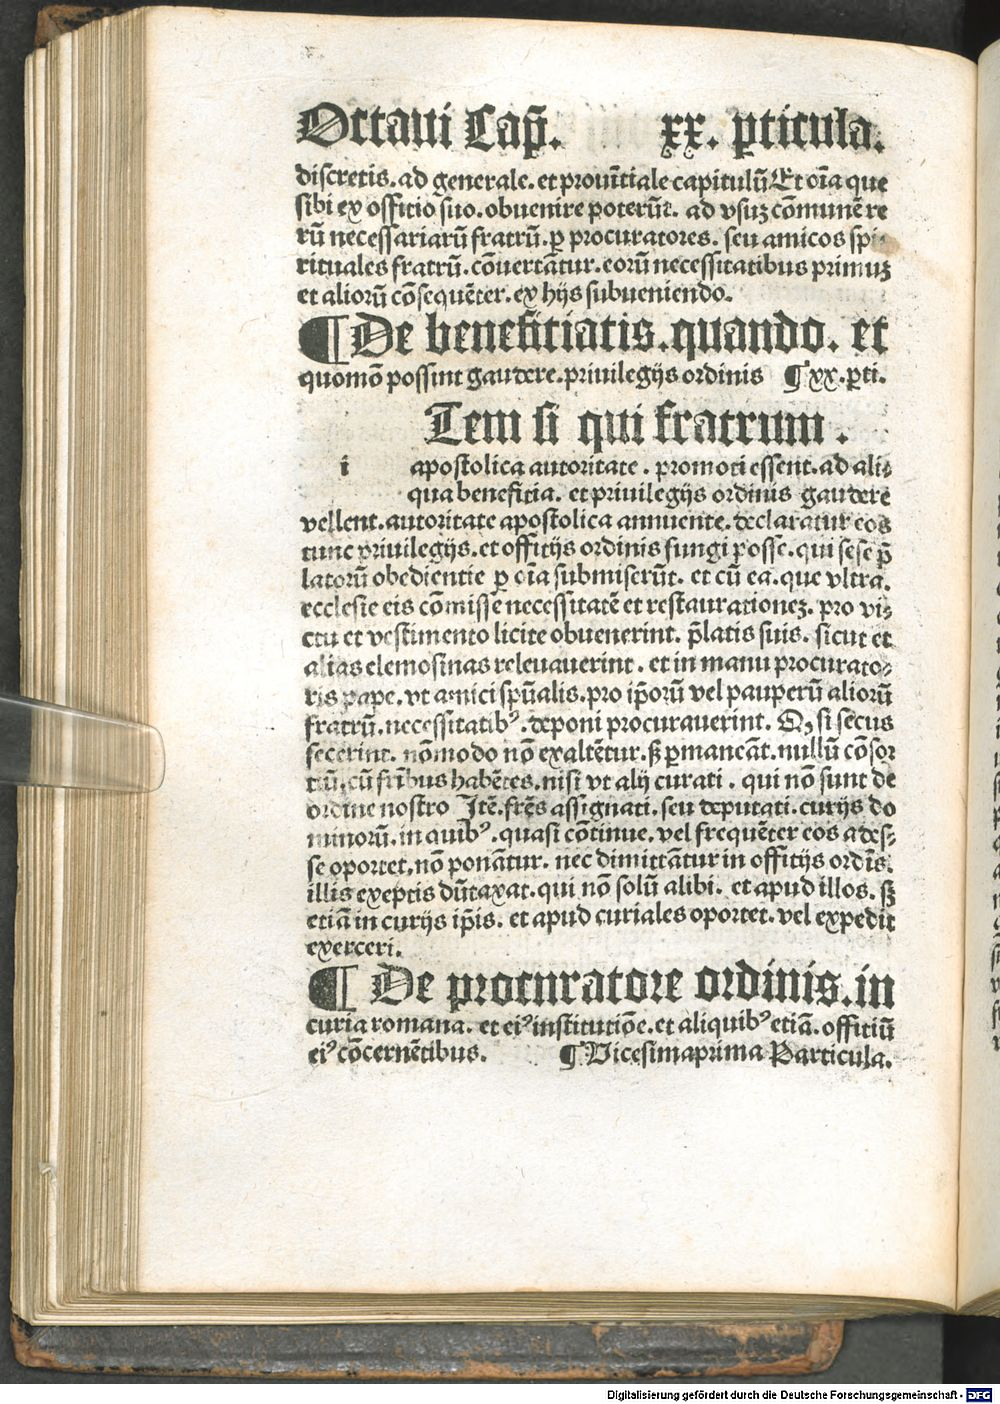 Octaui Cap̃. xx. ꝑticula.
discretis. ad generale. et prouĩtiale capitulũ Et oĩa que
sibi ex offitio suo. obuenire poterũt. ad vsuʒ cõmunẽ re
rũ necessariarũ fratrũ. ꝑ procuratores. seu amicos spi
rituales fratrũ. cõuertãtur. eorũ necessitatibus primuʒ
et aliorũ cõsequẽter. ex hijs subueniendo.
¶ De benefitiatis. quando. et
quomõ possint gaudere. priuilegijs ordinis ¶ xx. ꝑti.
Tem si qui fratrum.
i apostolica autoritate. promoti essent. ad ali⸗
qua benefitia. et priuilegijs ordinis gaudere
vellent. autoritate apostolica annuente. declaratur eos
tunc priuilegijs. et offitijs ordinis fungi posse. qui sese p̃
latorũ obedientie ꝑ oĩa submiserũt. et cũ ea. que vltra.
ecclesie eis cõmisse necessitatẽ et restaurationeʒ. pro vi⸗
ctu et vestimento licite obuenerint. p̃latis suis. sicut et
alias elemosinas releuauerint. et in manu procurato⸗
ris pape. vt amici spũalis. pro ip̃orũ vel pauperũ aliorũ
fratrũ. necessitatibꝰ. deponi procurauerint. Qꝫ si secus
fecerint. nõmodo nõ exaltẽtur. sꝫ ꝑmancãt. nullũ cõsor
tiũ. cũ fr̃ibus habẽtes. nisi vt alij curati. qui nõ sunt de
ordine nostro Itẽ. frẽs assignati. seu deputati. curijs do
minorũ. in quibꝰ. quasi cõtinue. vel frequẽter eos ades⸗
se oportet. nõ ponãtur. nec dimittãtur in offitijs ordĩs.
illis exeptis dũtaxat. qui nõ solũ alibi. et apud illos. sꝫ
etiã in curijs ip̃is. et apud curiales oportet. vel expedit
exerceri.
¶ De procuratore ordinis. in
curia romana. et eiꝰ institutiõe. et aliquibꝰ etiã. offitiũ
eiꝰ cõcernẽtibus. ¶ Vicesimaprima Particula.
Digitalisierung gefördert durch die Deutsche Forschungsgemeinschaft - DFG